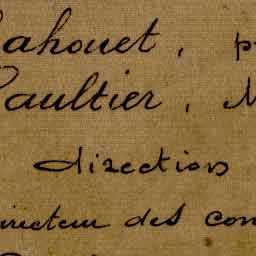 ahouet, p
aultier, M
direction
irecteur des con